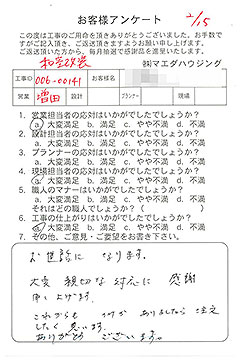 お客様アンケート 2/15
この度は工事のご用命を頂きありがとうございました。お手数で
すがご記入頂き、ご返送頂きますようお願い申し上げます。
ご返送頂いた方から、毎月抽選で感謝品を進呈いたします。
和室改装 ㈱マエダハウジング
工事№ 006-00141 お客様名
営業 増田 設計 プランナー 現場担当
1. 営業担当者の応対はいかがでしたでしょうか?
a. 大変満足 b. 満足 c. やや不満 d. 不満
2. 設計担当者の応対はいかがでしたでしょうか?
a. 大変満足 b. 満足 c. やや不満 d. 不満
3. プランナーの応対はいかがでしたでしょうか?
a. 大変満足 b. 満足 c. やや不満 d. 不満
4. 現場担当者の応対はいかがでしたでしょうか?
a. 大変満足 b. 満足 c. やや不満 d. 不満
5. 職人のマナーはいかがでしたでしょうか?
a. 大変満足 b. 満足 c. やや不満 d. 不満
それはどの職人でしょうか?( )
6. 工事の仕上がりはいかがでしたでしょうか?
a. 大変満足 b. 満足 c. やや不満 d. 不満
7. その他、ご意見・ご要望をお書き下さい。
お世話に なります。
大変 親切な 対応に 感謝
申し上げます。
これからも 何か ありましたら 注文
したく 思います。
ありがとう ございます。